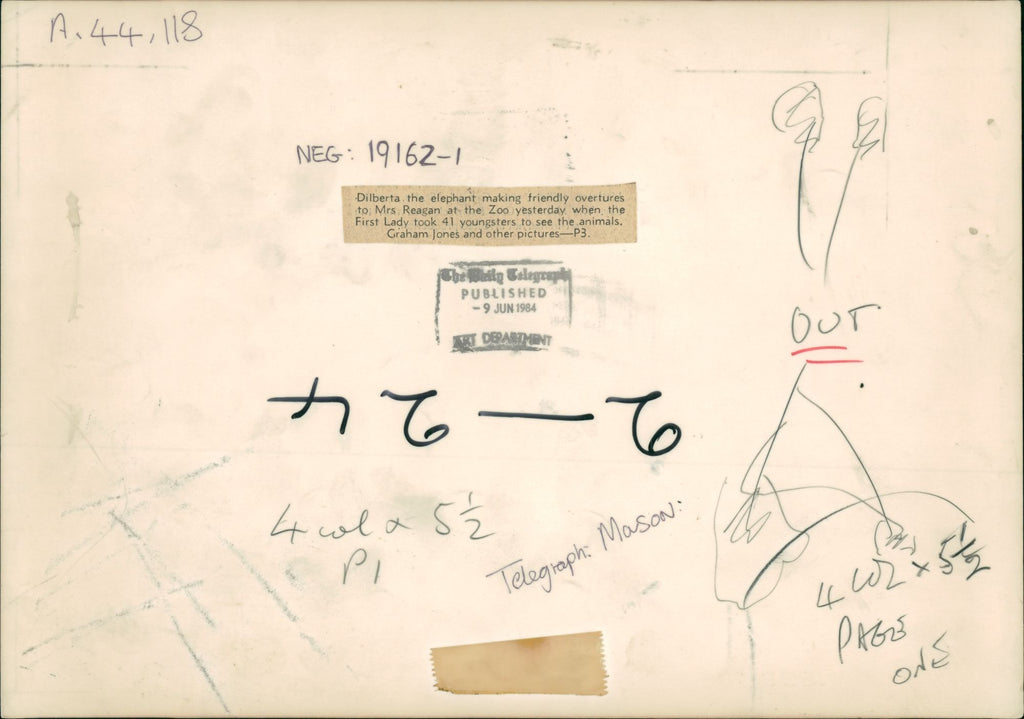 A.44,118
NEG: 19162-1
Dilberta the elephant making friendly overtures
to Mrs Reagan at the Zoo yesterday when the
First Lady took 41 youngsters to see the animals.
Graham Jones and other pictures—P3.
The Daily Telegraph
PUBLISHED
- 9 JUN 1984
ART DEPARTMENT
OUT
4 col x 5½
P1
Telegraph: Mason:
4 COL x 5½
PAGE
ONE